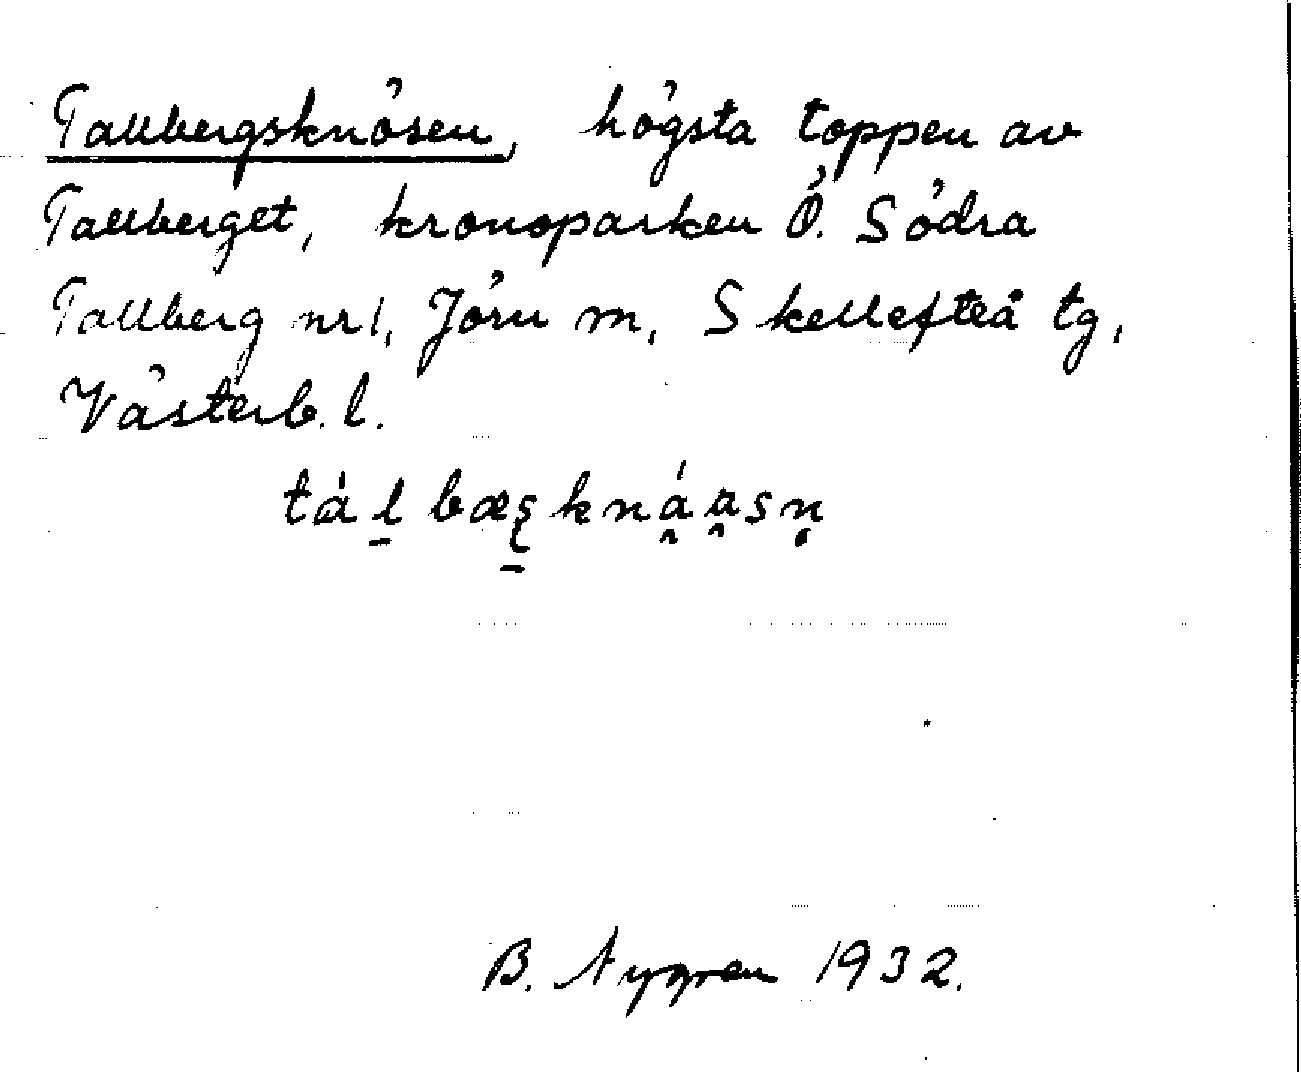 Tallbergsknösen, högsta toppen av
Tallberget, kronoparken Ö. Södra
Tallberg nr 1, Jörn m, Skellefteå tg,
Västerb. l.
tál̠ bæʂ̠kná̯a̯sn̥
B. Nygren 1932.